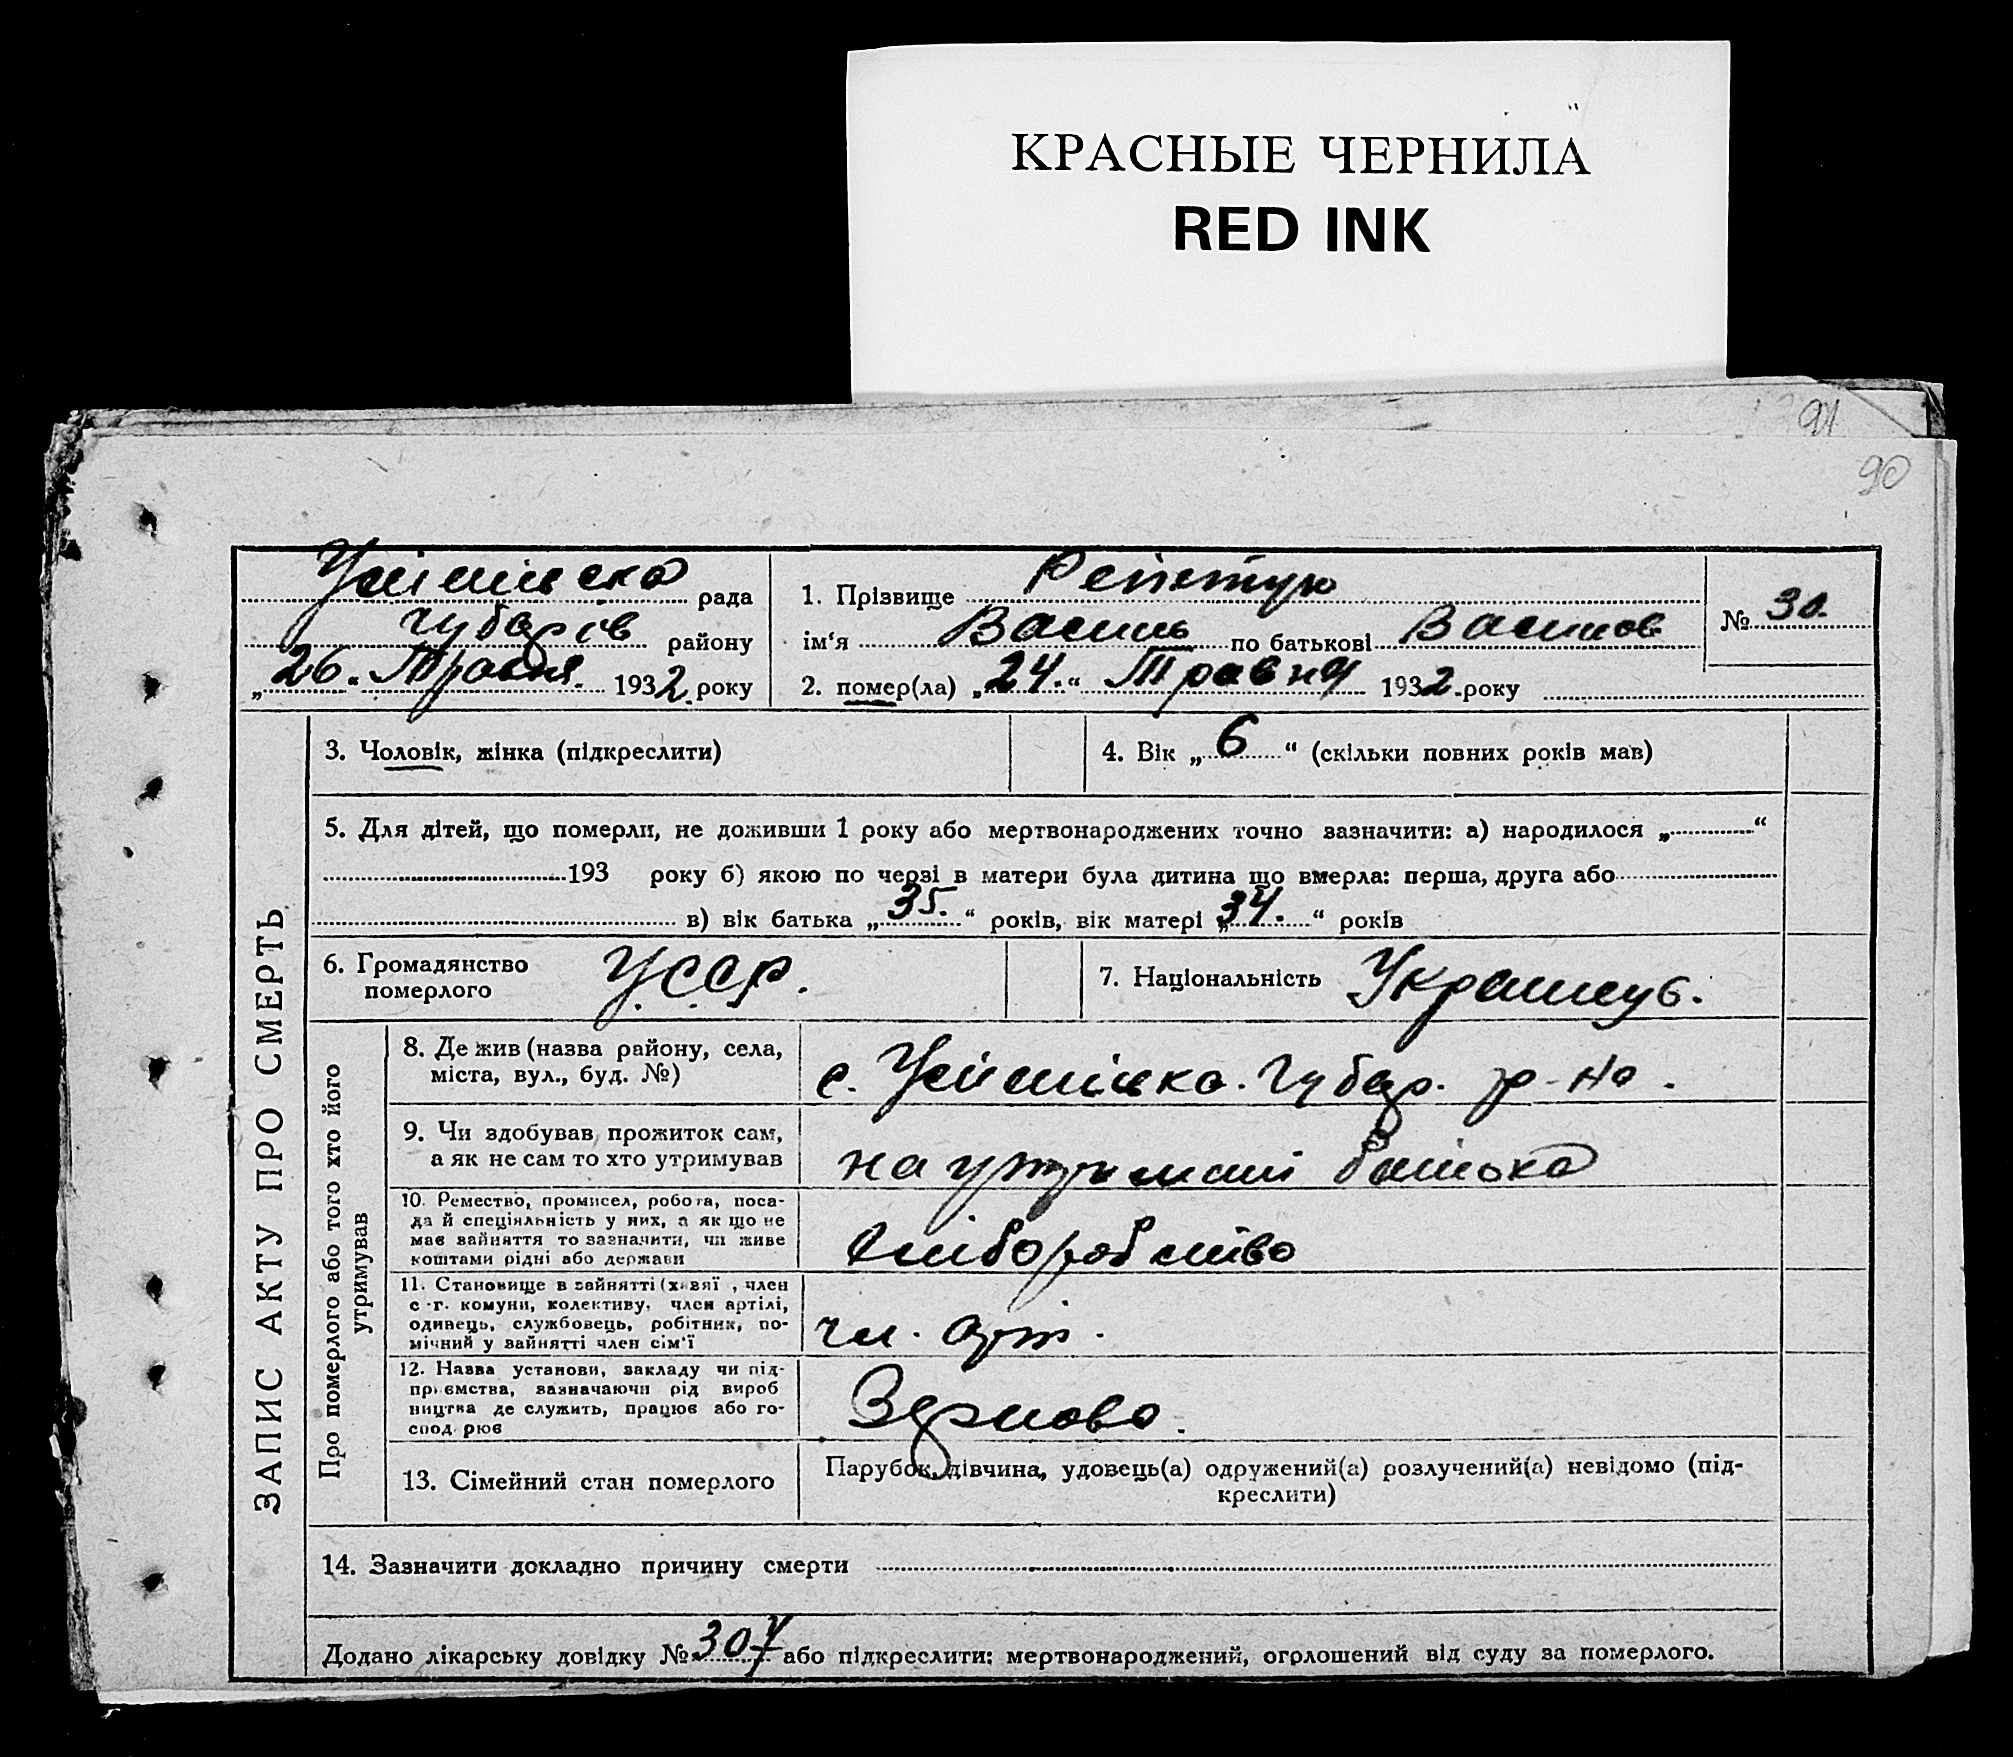 КРАСНЫЕ ЧЕРНИЛА
RED INK
91
90
рада
Чубарів району
„26.“ Травня. 1932 року
1. Прізвище
ім‘я Василь по батькові Васильов
№ 30.
2. помер(ла) „24.“ Травня 1932.року
ЗАПИС АКТУ ПРО СМЕРТЬ
3. Чоловік, жінка (підкреслити)
4. Вік „6“ (скільки повних років мав)
5. Для дітей, що померли, не доживши 1 року або мертвонароджених точно зазначити: а) народилося „ “
193 року б) якою по черзі в матери була дитина що вмерла: перша, друга або
в) вік батька „35.“ років, вік матері „34.“ років
6. Громадянство
померлого
УССР.
7. Національність
Про померлого або того хто його
утримував
8. Де жив (назва району, села,
міста, вул., буд. №)
с. Чубар. р-на.
9. Чи здобував прожиток сам,
а як не сам то хто утримував
на утриманні батька
10. Ремество, промисел, робота, поса-
да й спеціяльність у них, а як що не
має зайняття то зазначити, чи живе
коштами рідні або держави
хліборобство
11. Становище в зайнятті (хазяї , член
с -г. комуни, колективу, член артілі,
одинець, службовець, робітник, по-
мічний у зайнятті член сім‘ї
чл. арт.
12. Назва установи, закладу чи під-
приємства, зазначаючи рід вироб
ництва де служить, працює або го-
спод рює
Зернова.
13. Сімейний стан померлого
Парубок, дівчина, удовець(а) одружений(а) розлучений(а) невідомо (під-
креслити)
14. Зазначити докладно причину смерти
Додано лікарську довідку № 307 або підкреслити: мертвонароджений, оголошений від суду за померлого.